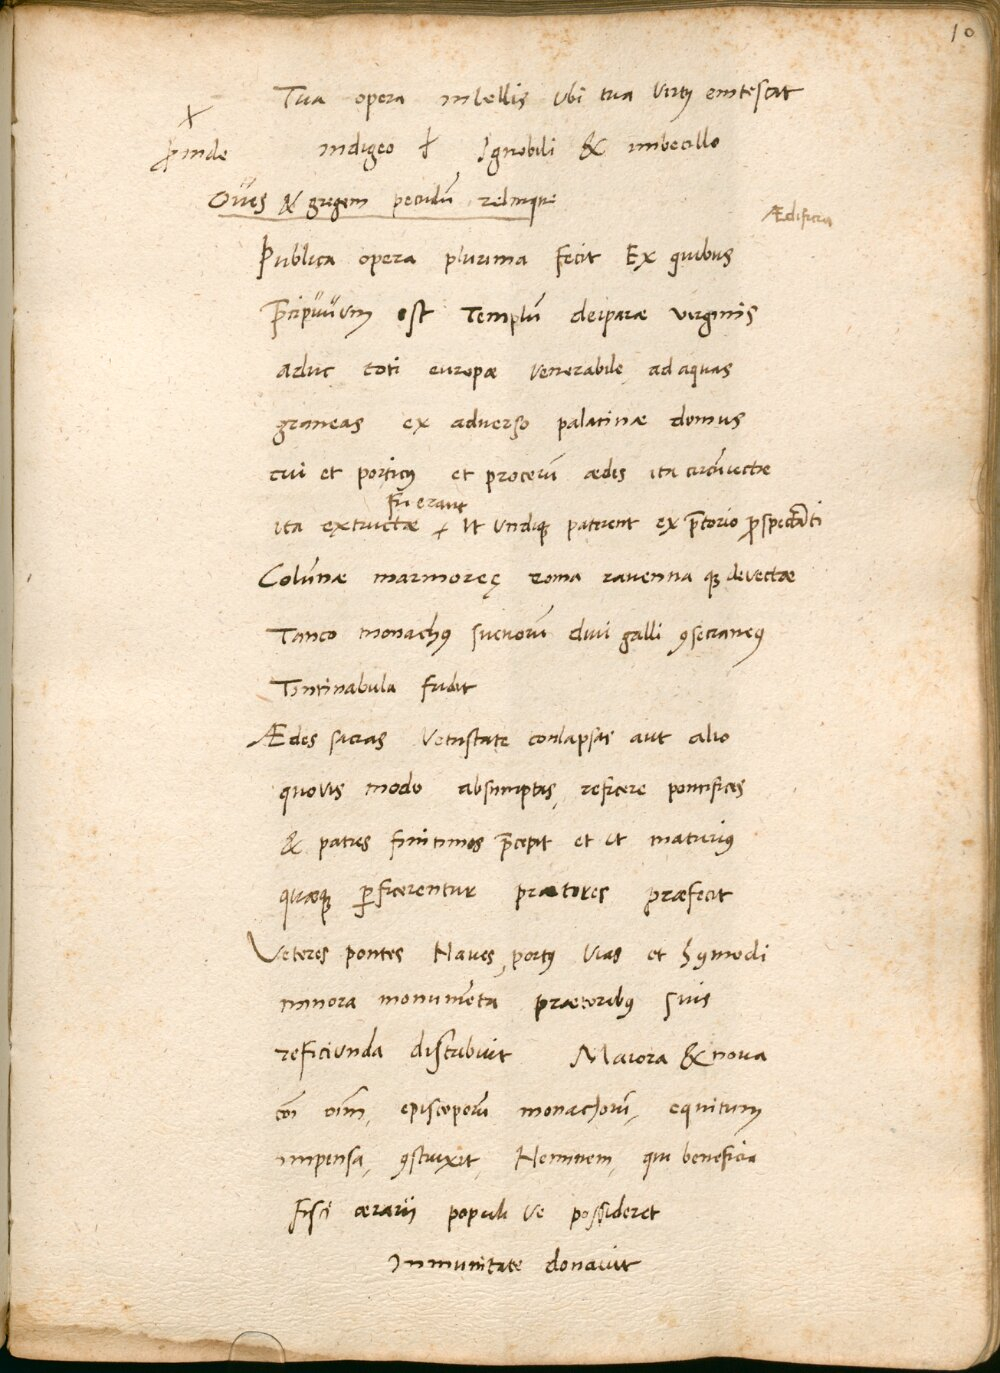 10
Tua opera in bellis Ubi tua Virtus enitescat
indigeo † Ignobili & imbecillo
ꝓinde
Oues & gregem pecudū relinque
Ædificia
Publica opera plurima fecit Ex quibus
p̄cipuuum est Templū deiparæ virginis
adhuc toti europæ venerabile ad aquas
graneas ex aduerso palatinæ domus
cui et porticus et procerū ædes ita circūuectæ
fuerant
ita extructæ Ut Undique paterent ex p̄torio ꝓspectāti
Colūnæ marmoreę roma rauenna que deuectæ
Tanco monachus sueuorū diui galli ꝯsecraneus
Tintinabula fudit
Ædes sacras Vetustate conlapsas aut alio
quouis modo absumptas, reficere pontifices
& patres finitimos p̄cepit et ut maturius
quæque ꝑficerentur prætores præfecit
Veteres pontes Naues, portus Vias et hꝰmodi
minora monumēta prætoribus suis
reficiunda distribuit Maiora & nova
cōi oīm, episcoporū monachorū, equitum
impensa, ꝯstruxit, Neminem, qui beneficia
fisci ærarii populi ve possideret
Inmunitate donauit